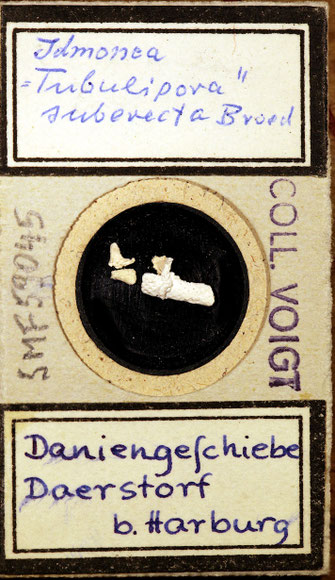 Idmonea
="Tubulipora"
suberecta Broed
SMF 59045
COLL. VOIGT
Daniengeſchiebe
Daerstorf
b. Harburg